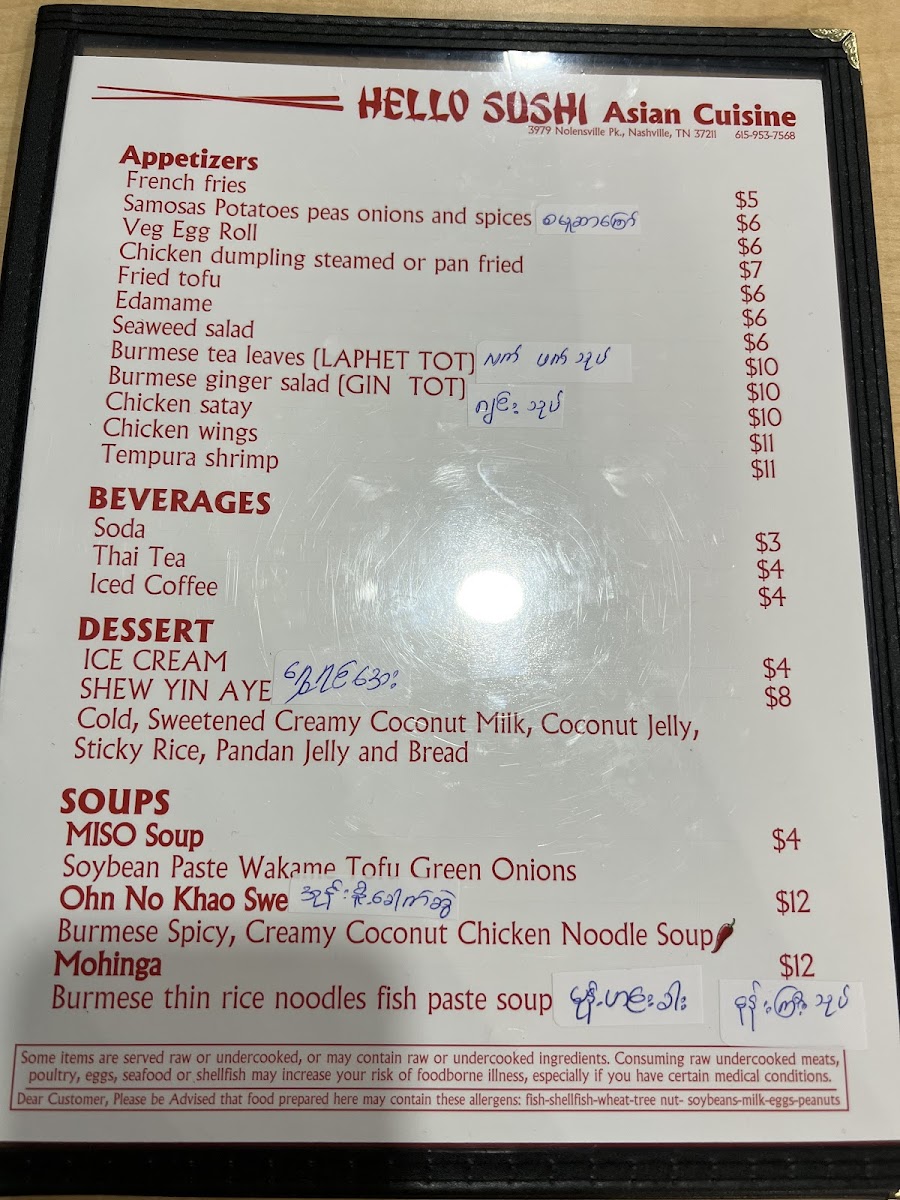 HELLO SUSHI Asian Cuisine
3979 Nolensville Pk., Nashville, TN 37211 615-953-7568
Appetizers
French fries $5
Samosas Potatoes peas onions and spices စမူဆာကြော် $6
Veg Egg Roll $6
Chicken dumpling steamed or pan fried $7
Fried tofu $6
Edamame $6
Seaweed salad $6
Burmese tea leaves (LAPHET TOT) လက် ဖက် သုပ် $10
Burmese ginger salad (GIN TOT) ဂျင်း သုပ် $10
Chicken satay $10
Chicken wings $11
Tempura shrimp $11
BEVERAGES
Soda $3
Thai Tea $4
Iced Coffee $4
DESSERT
ICE CREAM $4
SHEW YIN AYE ရွှေရင်အေး $8
Cold, Sweetened Creamy Coconut Milk, Coconut Jelly,
Sticky Rice, Pandan Jelly and Bread
SOUPS
MISO Soup $4
Soybean Paste Wakame Tofu Green Onions
Ohn No Khao Swe အုန်းနို့ခေါက်ဆွဲ $12
Burmese Spicy, Creamy Coconut Chicken Noodle Soup
Mohinga $12
Burmese thin rice noodles fish paste soup မုန့်ဟင်းခါး မုန့်ကြီးသုပ်
Some items are served raw or undercooked, or may contain raw or undercooked ingredients. Consuming raw undercooked meats,
poultry, eggs, seafood or shellfish may increase your risk of foodborne illness, especially if you have certain medical conditions.
Dear Customer, Please be Advised that food prepared here may contain these allergens: fish-shellfish-wheat-tree nut- soybeans-milk-eggs-peanuts